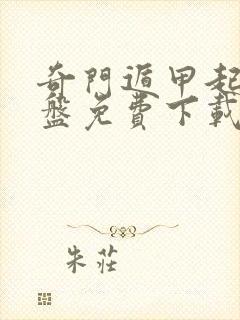 奇門遁甲起
盤免費下載
朱莊